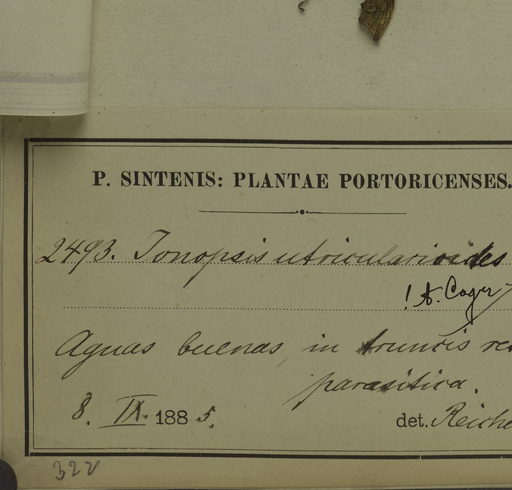 P. SINTENIS: PLANTAE PORTORICENSES.
2493. Ionopsis utricularioides
! A.
Aguas buenas, in truncis
parasitica.
8. IX. 1885.
det. Reiche
322